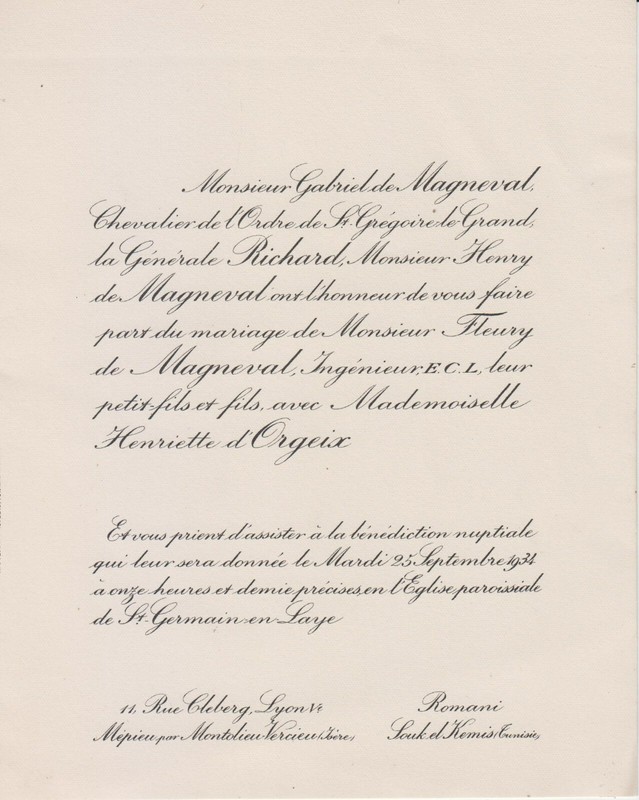 Monsieur Gabriel de Magneval,
Chevalier de l'Ordre de St. Grégoire-le-Grand,
la Générale Richard, Monsieur Henry
de Magneval ont l'honneur de vous faire
part du mariage de Monsieur Fleury
de Magneval, Ingénieur, E.C.L, leur
petit-fils et fils, avec Mademoiselle
Henriette d'Orgeix
Et vous prient d'assister à la bénédiction nuptiale
qui leur sera donnée le Mardi 25 Septembre 1934
à onze heures et demie précises, en l'Eglise paroissiale
de St. Germain-en-Laye
11, Rue Cleberg, Lyon Ve
Mépieu, par Montolieu-Vercieu (Isère)
Romani
Souk el Kemis (Tunisie)